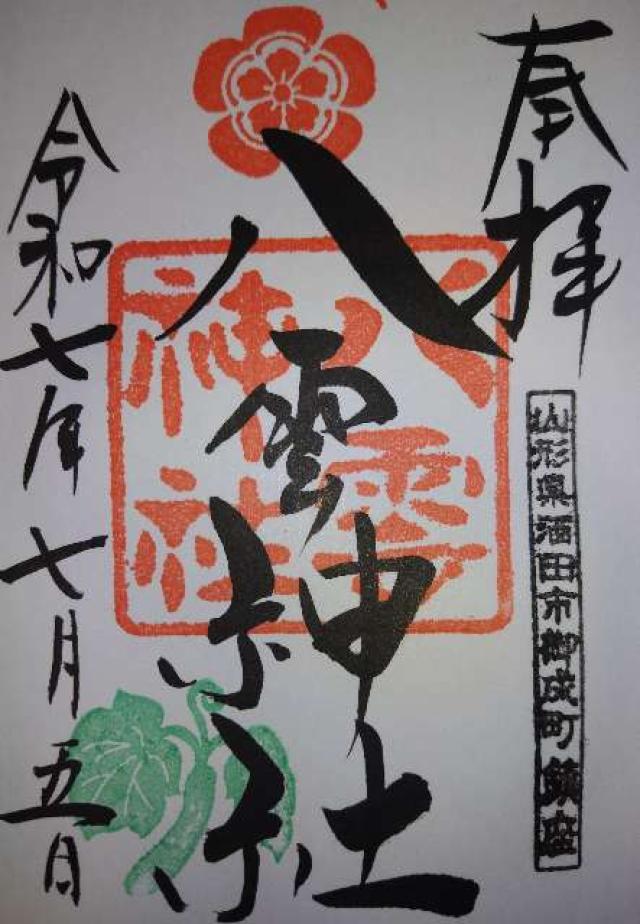 奉拝
山形県酒田市御成町鎮座
八雲神社
八雲
神社
令和七年七月五日